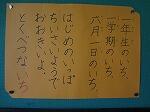 一年生のいち、
一学期のいち、
六月一日のいち。
はじめのいっぽ
ちいさいようで
おおきいよ。
とくべつないち